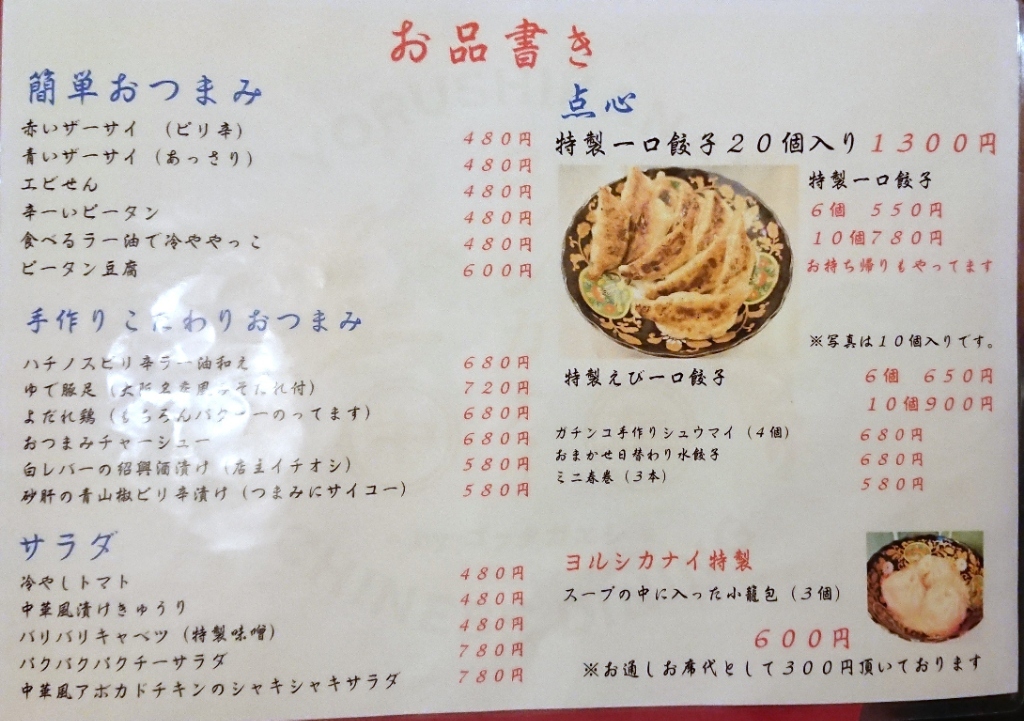 お品書き
簡単おつまみ
赤いザーサイ （ピリ辛） 480円
青いザーサイ（あっさり） 480円
エビせん 480円
辛ーいピータン 480円
食べるラー油で冷ややっこ 480円
ピータン豆腐 600円
手作りこだわりおつまみ
ハチノスピリ辛ラー油和え 680円
ゆで豚足（大阪 風 そだれ付） 720円
よだれ鶏（もちろんパクチーのってます） 680円
おつまみチャーシュー 680円
白レバーの紹興酒漬け（店主イチオシ） 580円
砂肝の青山椒ピリ辛漬け（つまみにサイコー） 580円
サラダ
冷やしトマト 480円
中華風漬けきゅうり 480円
パリパリキャベツ（特製味噌） 480円
パクパクパクチーサラダ 780円
中華風アボカドチキンのシャキシャキサラダ 780円
点心
特製一口餃子２０個入り１３００円
特製一口餃子
６個 ５５０円
１０個７８０円
お持ち帰りもやってます
※写真は１０個入りです。
特製えび一口餃子 ６個 ６５０円
１０個９００円
ガチンコ手作りシュウマイ（４個） 680円
おまかせ日替わり水餃子 680円
ミニ春巻（３本） 580円
ヨルシカナイ特製
スープの中に入った小籠包（３個）
６００円
※お通しお席代として３００円頂いております